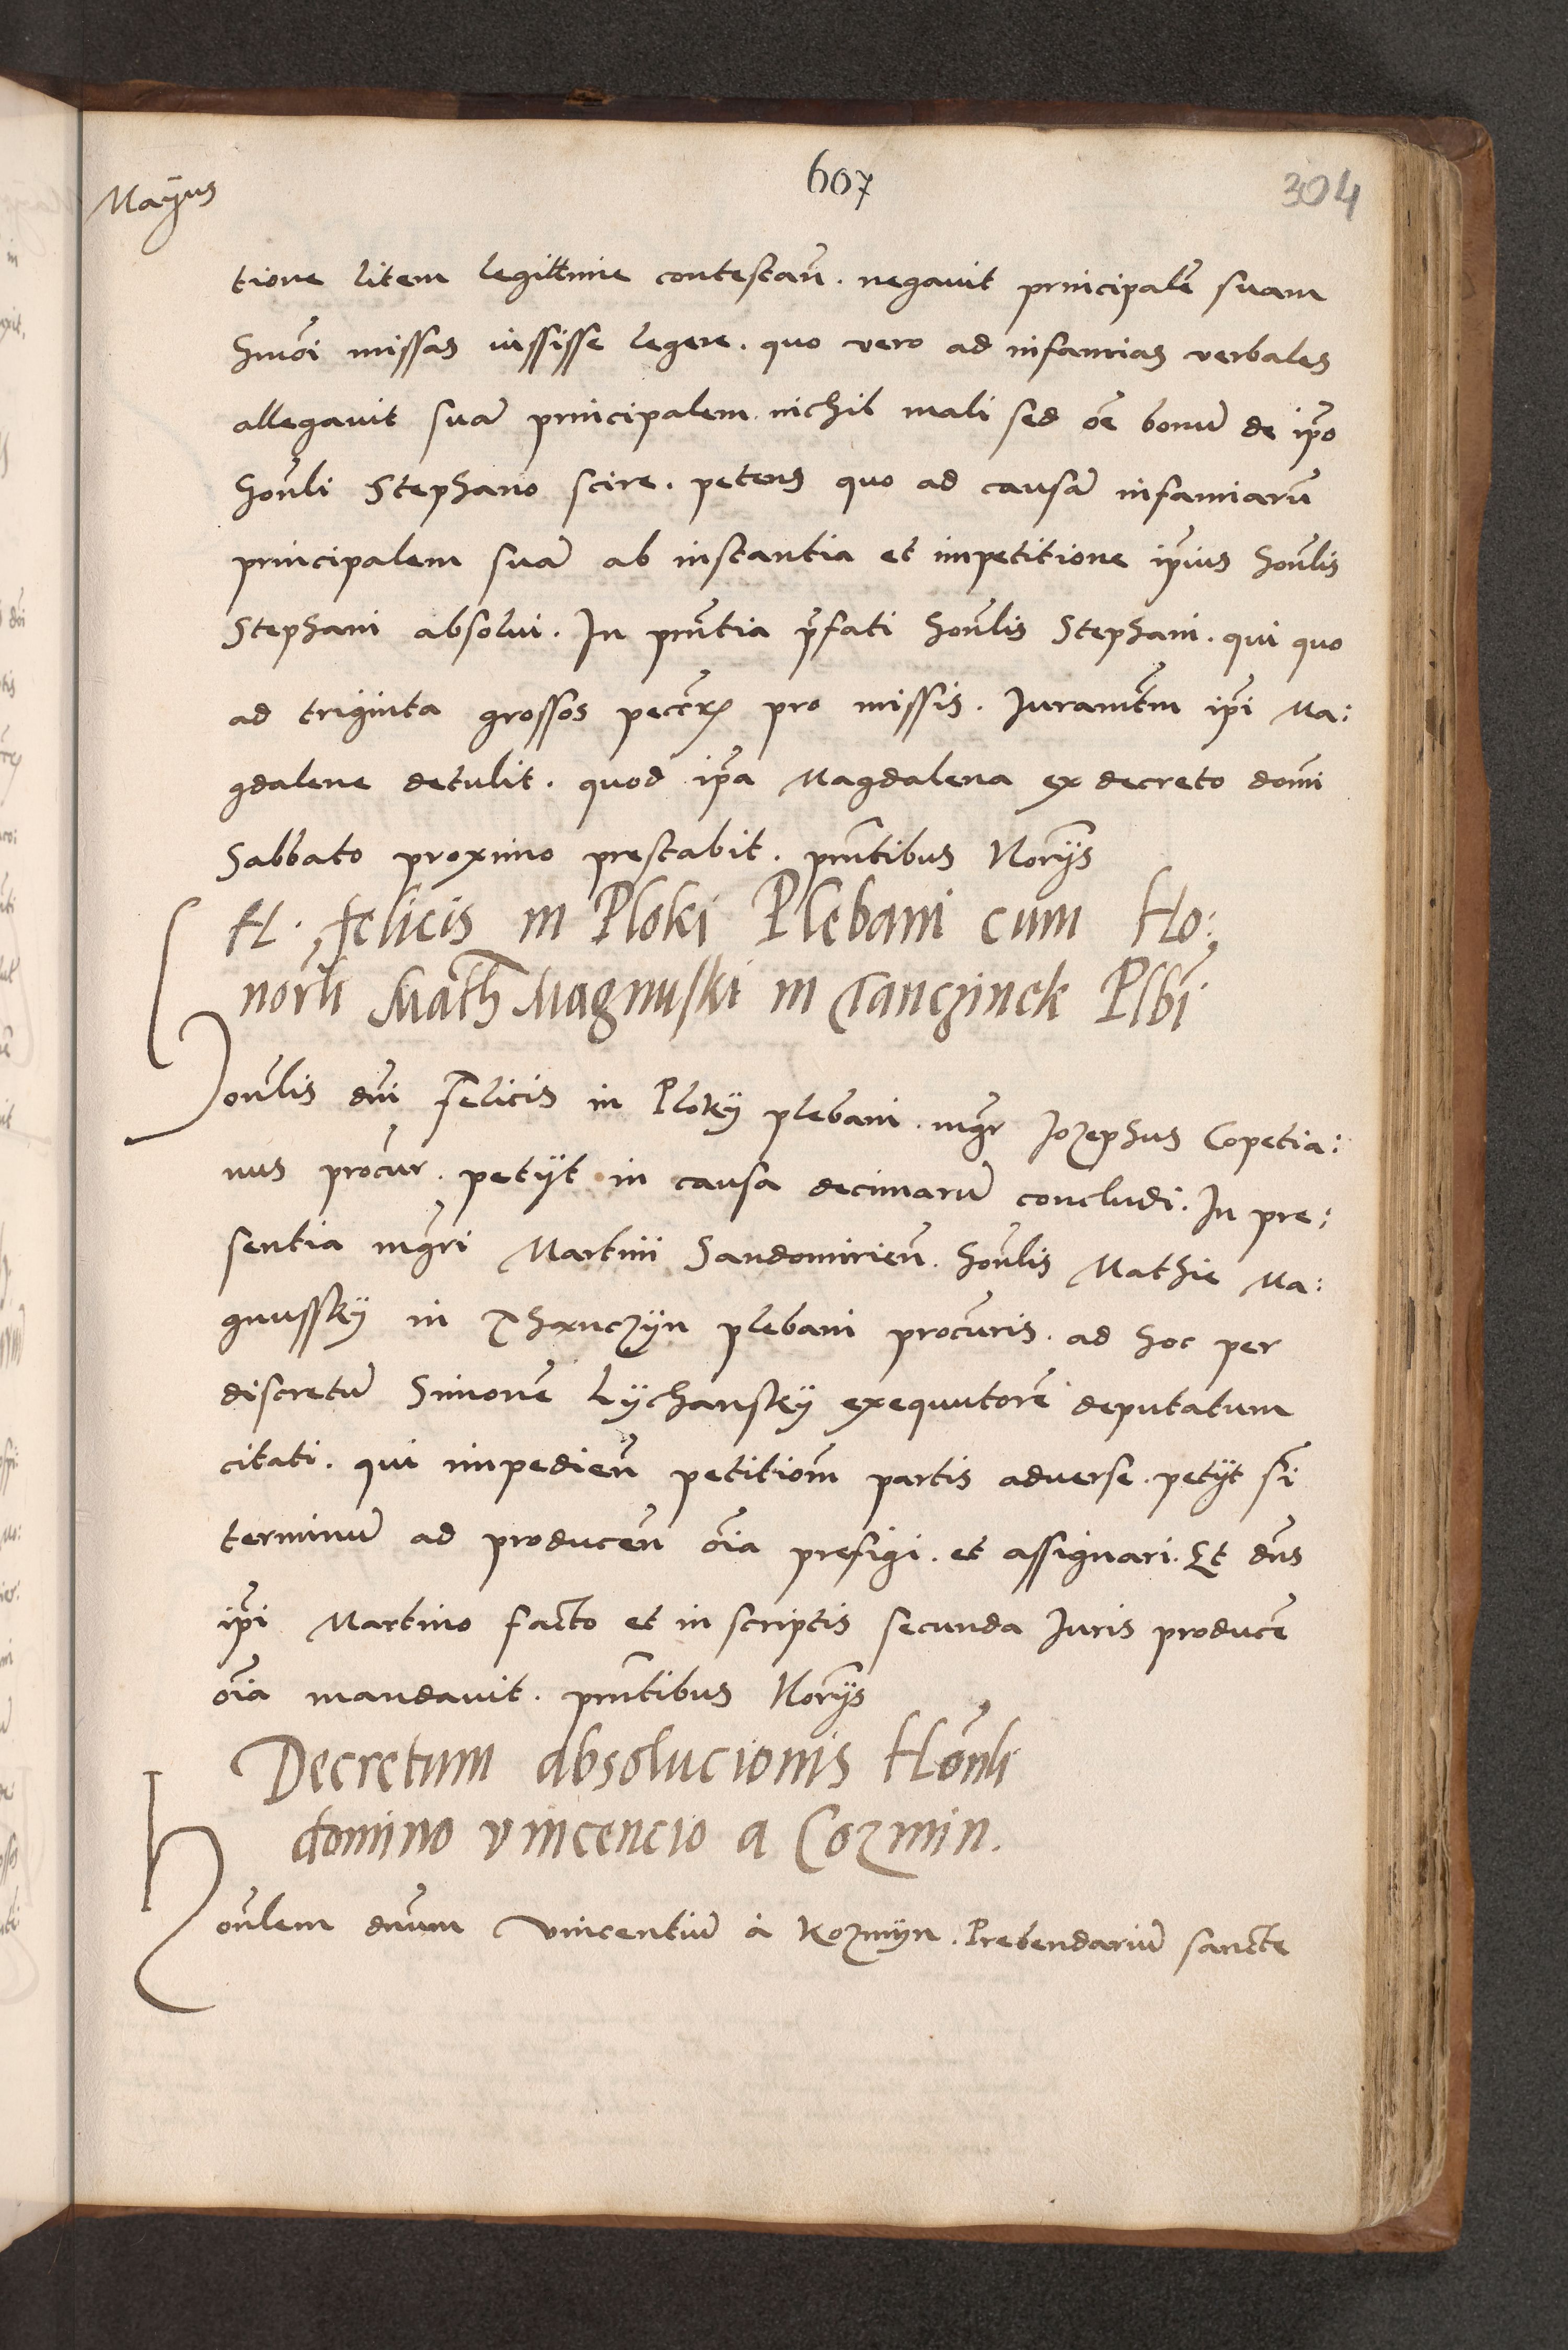 Mayus
607
304
tione litem legittime contestan̄. negavit principalē suam
hmōi missas iussisse legere. quo vero ad infamias verbales
allegavit suā principalem nichil mali sed oē bonū de ip̄o
hon̄li Stephano scire. petens quo ad causā infamiarū
principalem suā ab instantia et impetitione ip̄ius hon̄lis
Stephani absolui. In pn̄tia p̄fati hon̄lis Stephani. qui quo
ad triginta grossos pro missis. Juramētm ip̄i Ma:
gdalene detulit. quod ip̄a Magdalena ex decreto domi
Sabbato proximo prestabit. pn̄tibus Norijs
H. felicis in Ploki Plebani cum Ho:
norli Math Magnuski in Tanczinek Plbi
Hon̄lis dn̄i felicis in Ploky plebani. mgr̄ Jozephus Copetia:
nus procur. petijt in causa decimarū concludi. In pre:
sentia mgr̄i Martini Sandomirien̄. hon̄lis Mathie Ma:
gnussky in Thanczyn plebani procuris. ad hoc per
discretū Simonē Lychansky exequutorē deputatum
citati. qui impedien̄ petitiōm partis adverse. petijt sī
terminū ad producen̄ oīa prefigi. et assignari. Et dn̄s
ip̄i Martino facto et in scriptis secunda Juris producē
oīa mandavit. pn̄tibus Norijs
Decretum absolucionis Honli
domino vincencio a Cozmin.
Hon̄lem dn̄um vincentiū à Kozmyn. Prebendariū sancte